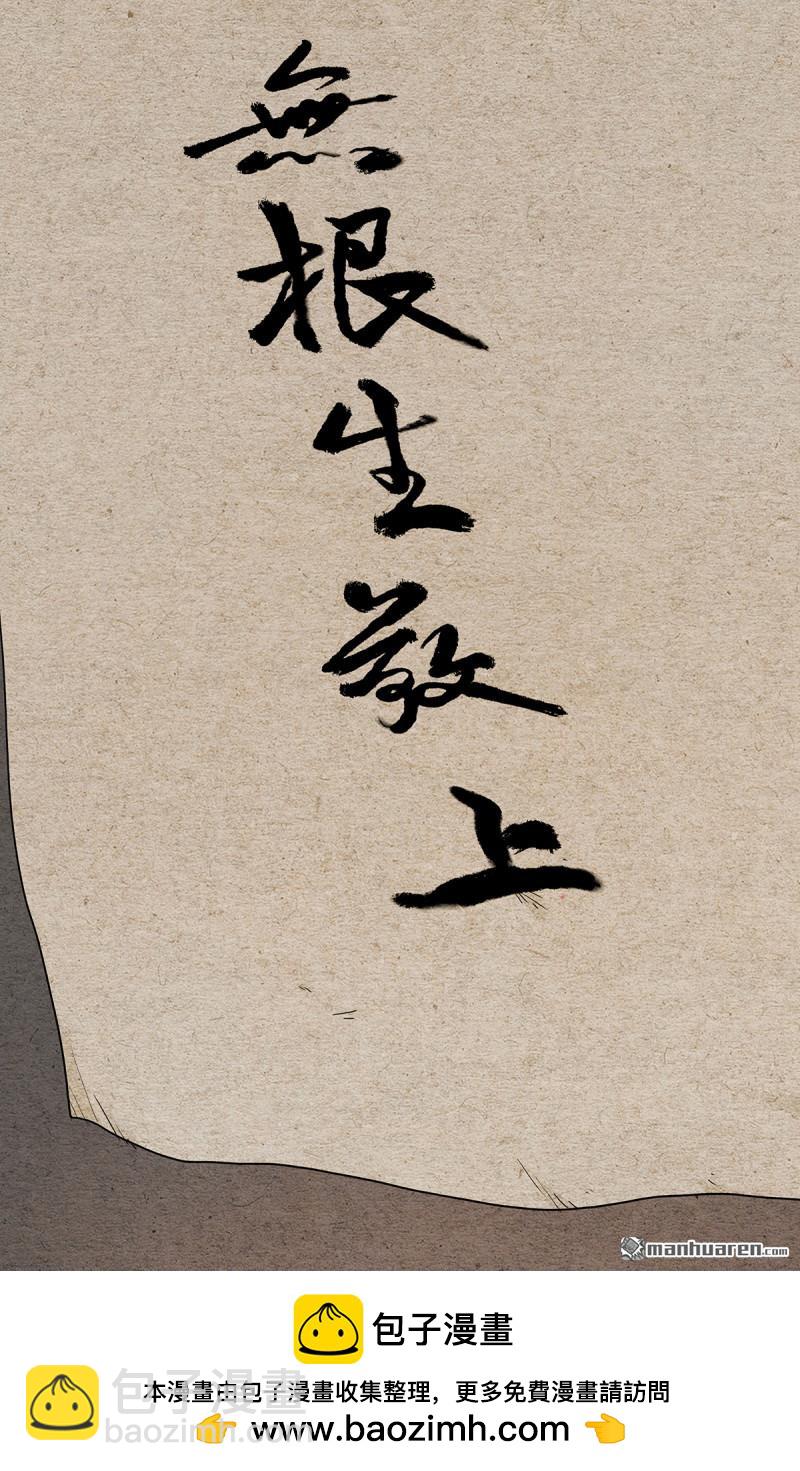 無根生敬上
manhuaren.com
包子漫畫
包子漫畫
本漫畫由包子漫畫收集整理，更多免費漫畫請訪問
baozimh.com
👉 www.baozimh.com 👈